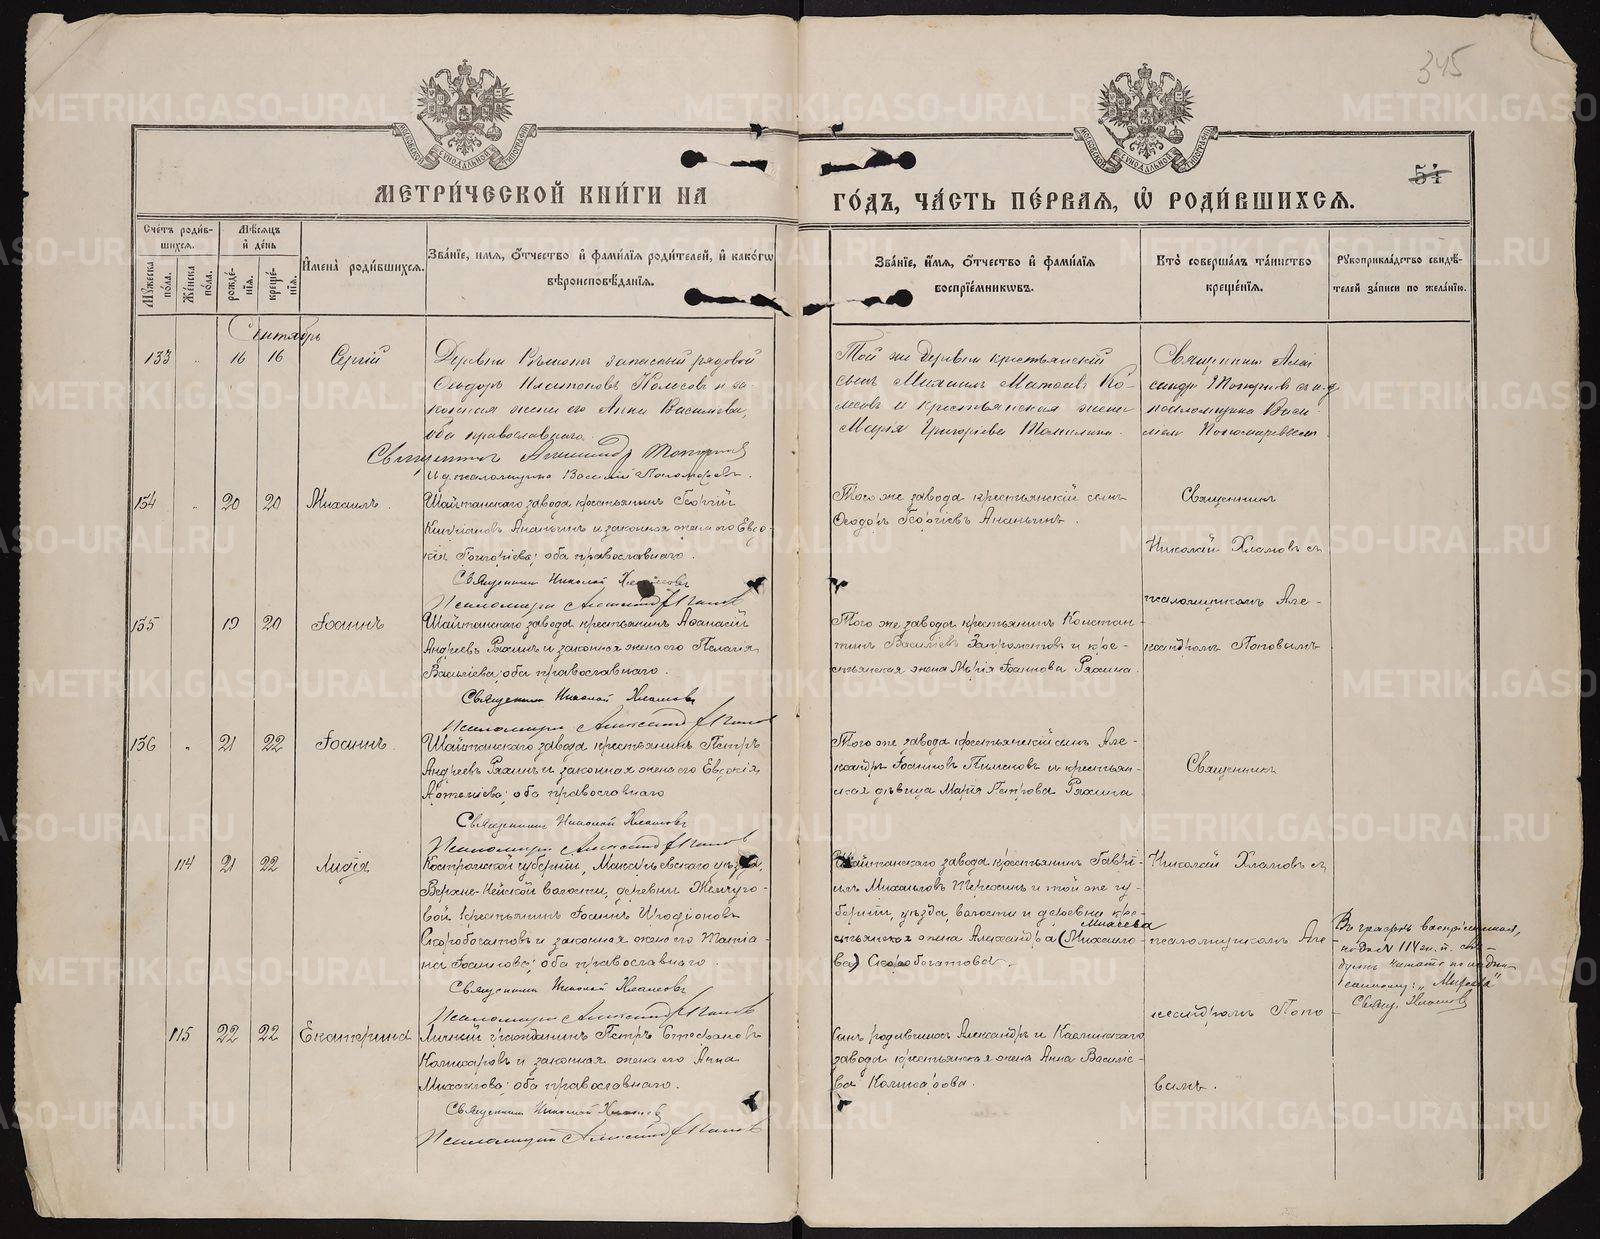 345
54
МЕТРИ́ЧЕСКОЙ КНИ́ГИ НА
ГО́ДЪ, ЧА́СТЬ ПЕ́РВАЯ, Ѡ҆ РОДИ́ВШИХСЯ.
Счетъ роди́вшихся.
Мужеска по́ла.
Же́нска по́ла.
Мѣ́сяцъ и҆ де́нь
рожде́нїя.
креще́нїя.
И҆мена̀ роди́вшихся.
Зва́нїе, и҆мя, о҆́тчество и҆ фами́лїя роди́телей, и҆ како́гѡ вѣроисповѣ́данїя.
Зва́нїе, и҆́мя, о҆́тчество и҆ фами́лїя воспрїе́мникѡвъ.
Кто̀ соверша́лъ та́инство креще́нїя.
Рукоприкла́дство свидѣ́телей за́писи по жела́нїю.
Сентябрь
133 " 16 16 Сергій
Деревни запасный рядовой
Платоновъ Колесовъ и за-
конная жена его Анна Васильева,
оба православнаго.
Священникъ Александръ Топорковъ
И. д. псаломщика Василій Пономаревъ.
Той же деревни крестьянскій
сынъ Михаилъ Матѳіевъ Ко-
лесовъ и крестьянская жена
Марія Григоріева Томилина.
Священникъ Алек
сандръ Топорковъ с и. д.
псаломщика Васи
ліемъ Пономаревымъ
134 " 20 20 Михаилъ.
Шайтанскаго завода крестьянинъ Георгій
Ананьинъ и законная жена его Евдо-
кія Григоріева; оба православнаго.
Священникъ Николай Хламовъ
Псаломщикъ Александръ Поповъ
Того же завода крестьянскій сынъ
Ѳеодоръ Георгіевъ Ананьинъ.
Священникъ
Николай Хламовъ съ
псаломщикомъ Але-
ксандромъ Поповымъ
135 19 20 Іоаннъ
Шайтанскаго завода крестьянинъ Аѳанасій
Андреевъ Ряхинъ и законная жена его Пелагія
Васильева; оба православнаго.
Священникъ Николай Хламовъ
Псаломщикъ Александръ Поповъ
Того же завода крестьянинъ Констан-
тинъ Василіевъ и кре-
стьянская жена Марія Іоаннова Ряхина.
136 " 21 22 Іоаннъ.
Шайтанскаго завода крестьянинъ Петръ
Андреевъ Ряхинъ и законная жена его Евдокія
Артеміева; оба православнаго
Священникъ Николай Хламовъ
Псаломщикъ Александръ Поповъ
Того же завода крестьянскій сынъ Але-
ксандръ Іоанновъ Пименовъ и крестьян-
ская дѣвица Марія Петрова Ряхина
Священникъ
114 21 22 Лидія
Костромской губерніи, Макарьевскаго уѣзда,
Верхне-Нейской волости, деревни Жемчуго-
вой крестьянинъ Іоаннъ Иродіоновъ
Скоробогатовъ и законная жена его Татіа-
на Іоаннова; оба православнаго.
Священникъ Николай Хламовъ
Псаломщикъ Александръ Поповъ
Шайтанскаго завода крестьянинъ Гаврі-
илъ Михайловъ и той же гу-
берніи, уѣзда, волости и деревни кре-
Михеева
стьянская жена Александра (Михайло-
ва) Скоробогатова.
Николай Хламовъ съ
псаломщикомъ Але-
ксандромъ Попо
вымъ.
Въ графѣ воспріемниковъ,
подъ № 114 ж. п.
читать по надпи-
санному: "Михеева"
Свящ. Хламовъ
115 22 22 Екатерина
Личный гражданинъ Петръ Стефановъ
Колмаровъ и законная жена его Анна
Михайлова; оба православнаго.
Священникъ Николай Хламовъ
Псаломщикъ Александръ Поповъ
Сынъ родившихъ Александръ и Каслинскаго
завода крестьянская жена Анна Василіе-
ва Колмарова.
METRIKI.GASO-URAL.RU